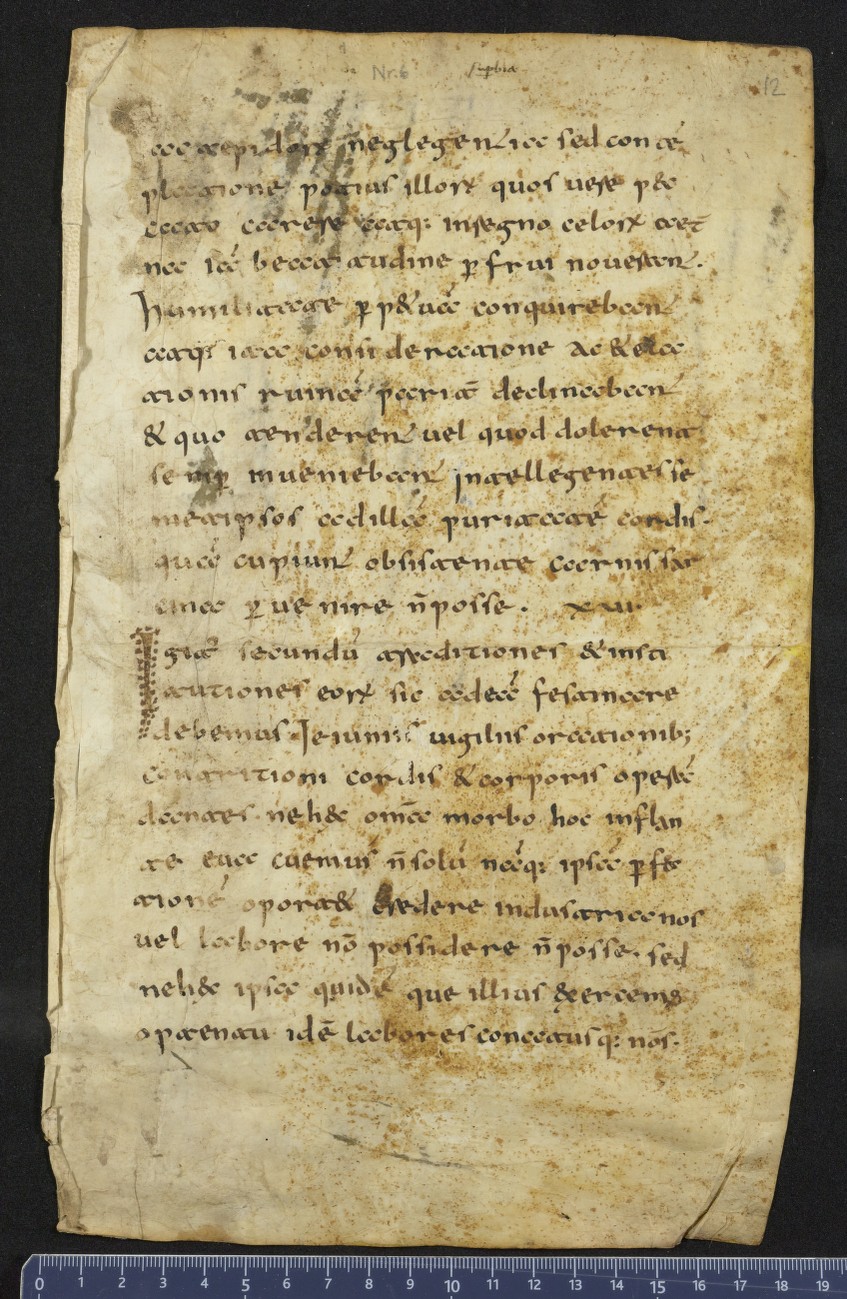 a tepidorꝝ neglegentia sed con tē
platione potius illorꝝ quos uere pec
cato carere atq: inregno celorꝝ aet̄
na iā beatitudine ꝑ frui nouerant.
humilitate ꝑp&uā conquirebant
atq: ita consideratione ac & ela
tionis ruinā pariē declinabant
& quo tenderent uel quod dolerent
semꝑ inueniebant intellegentes se
metipsos ad illā puritatē cordis.
quā cupiunt obsistente carnis sar
cina ꝑ ue nire n̄posse. xvi.
Igiē secundū traditiones & insti
tutiones eorꝝ sic ad eā festinare
debemus Ieiuniis uigiliis orationib;
contritioni cordis & corporis operā
dantes nehec om̄a morbo hoc inflan
te euacuemus n̄solū nāq: ipsā ꝑfec
tionē oport& credere industria nos
uel labore nr̄o possidere n̄posse. sed
nehec ipsa quidē que illius exercem;
optentu idē labores conatusq: nōs.